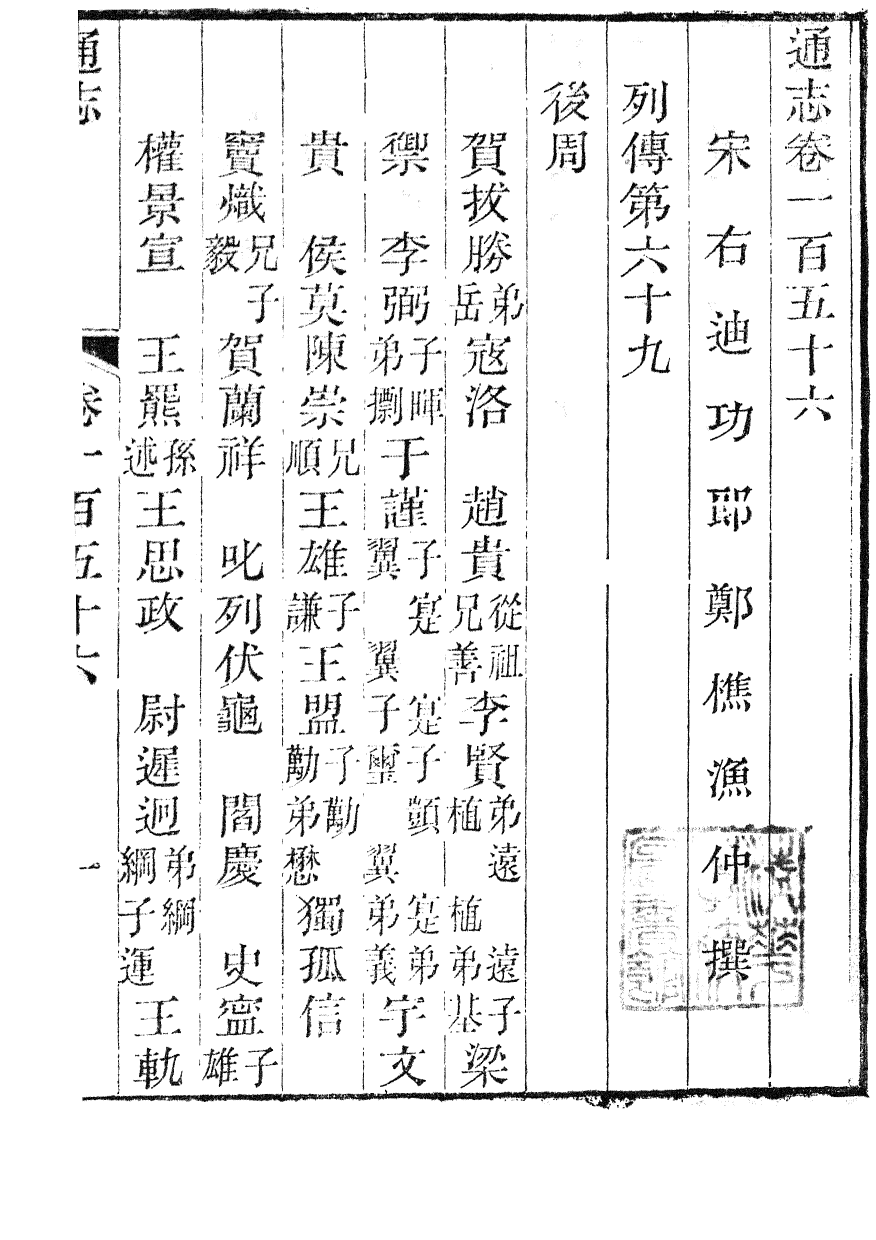 通志卷一百五十六
宋右迪功郎鄭樵漁仲撰
列傳第六十九
後周
賀拔勝弟岳 寇洛 趙貴從祖兄善 李賢弟遠 遠子植 植弟基 梁
禦 李弼子暉弟 于謹子寔 寔子顗 寔弟翼 翼子璽 翼弟義 宇文
貴 侯莫陳崇兄順 王雄子謙 王盟子勱 勱弟懋 獨孤信
竇熾兄子毅 賀蘭祥 叱列伏龜 閻慶 史寧子雄
權景宣 王羆孫述 王思政 尉遲迥弟綱 綱子運 王軌
通志 卷一百五十六 一